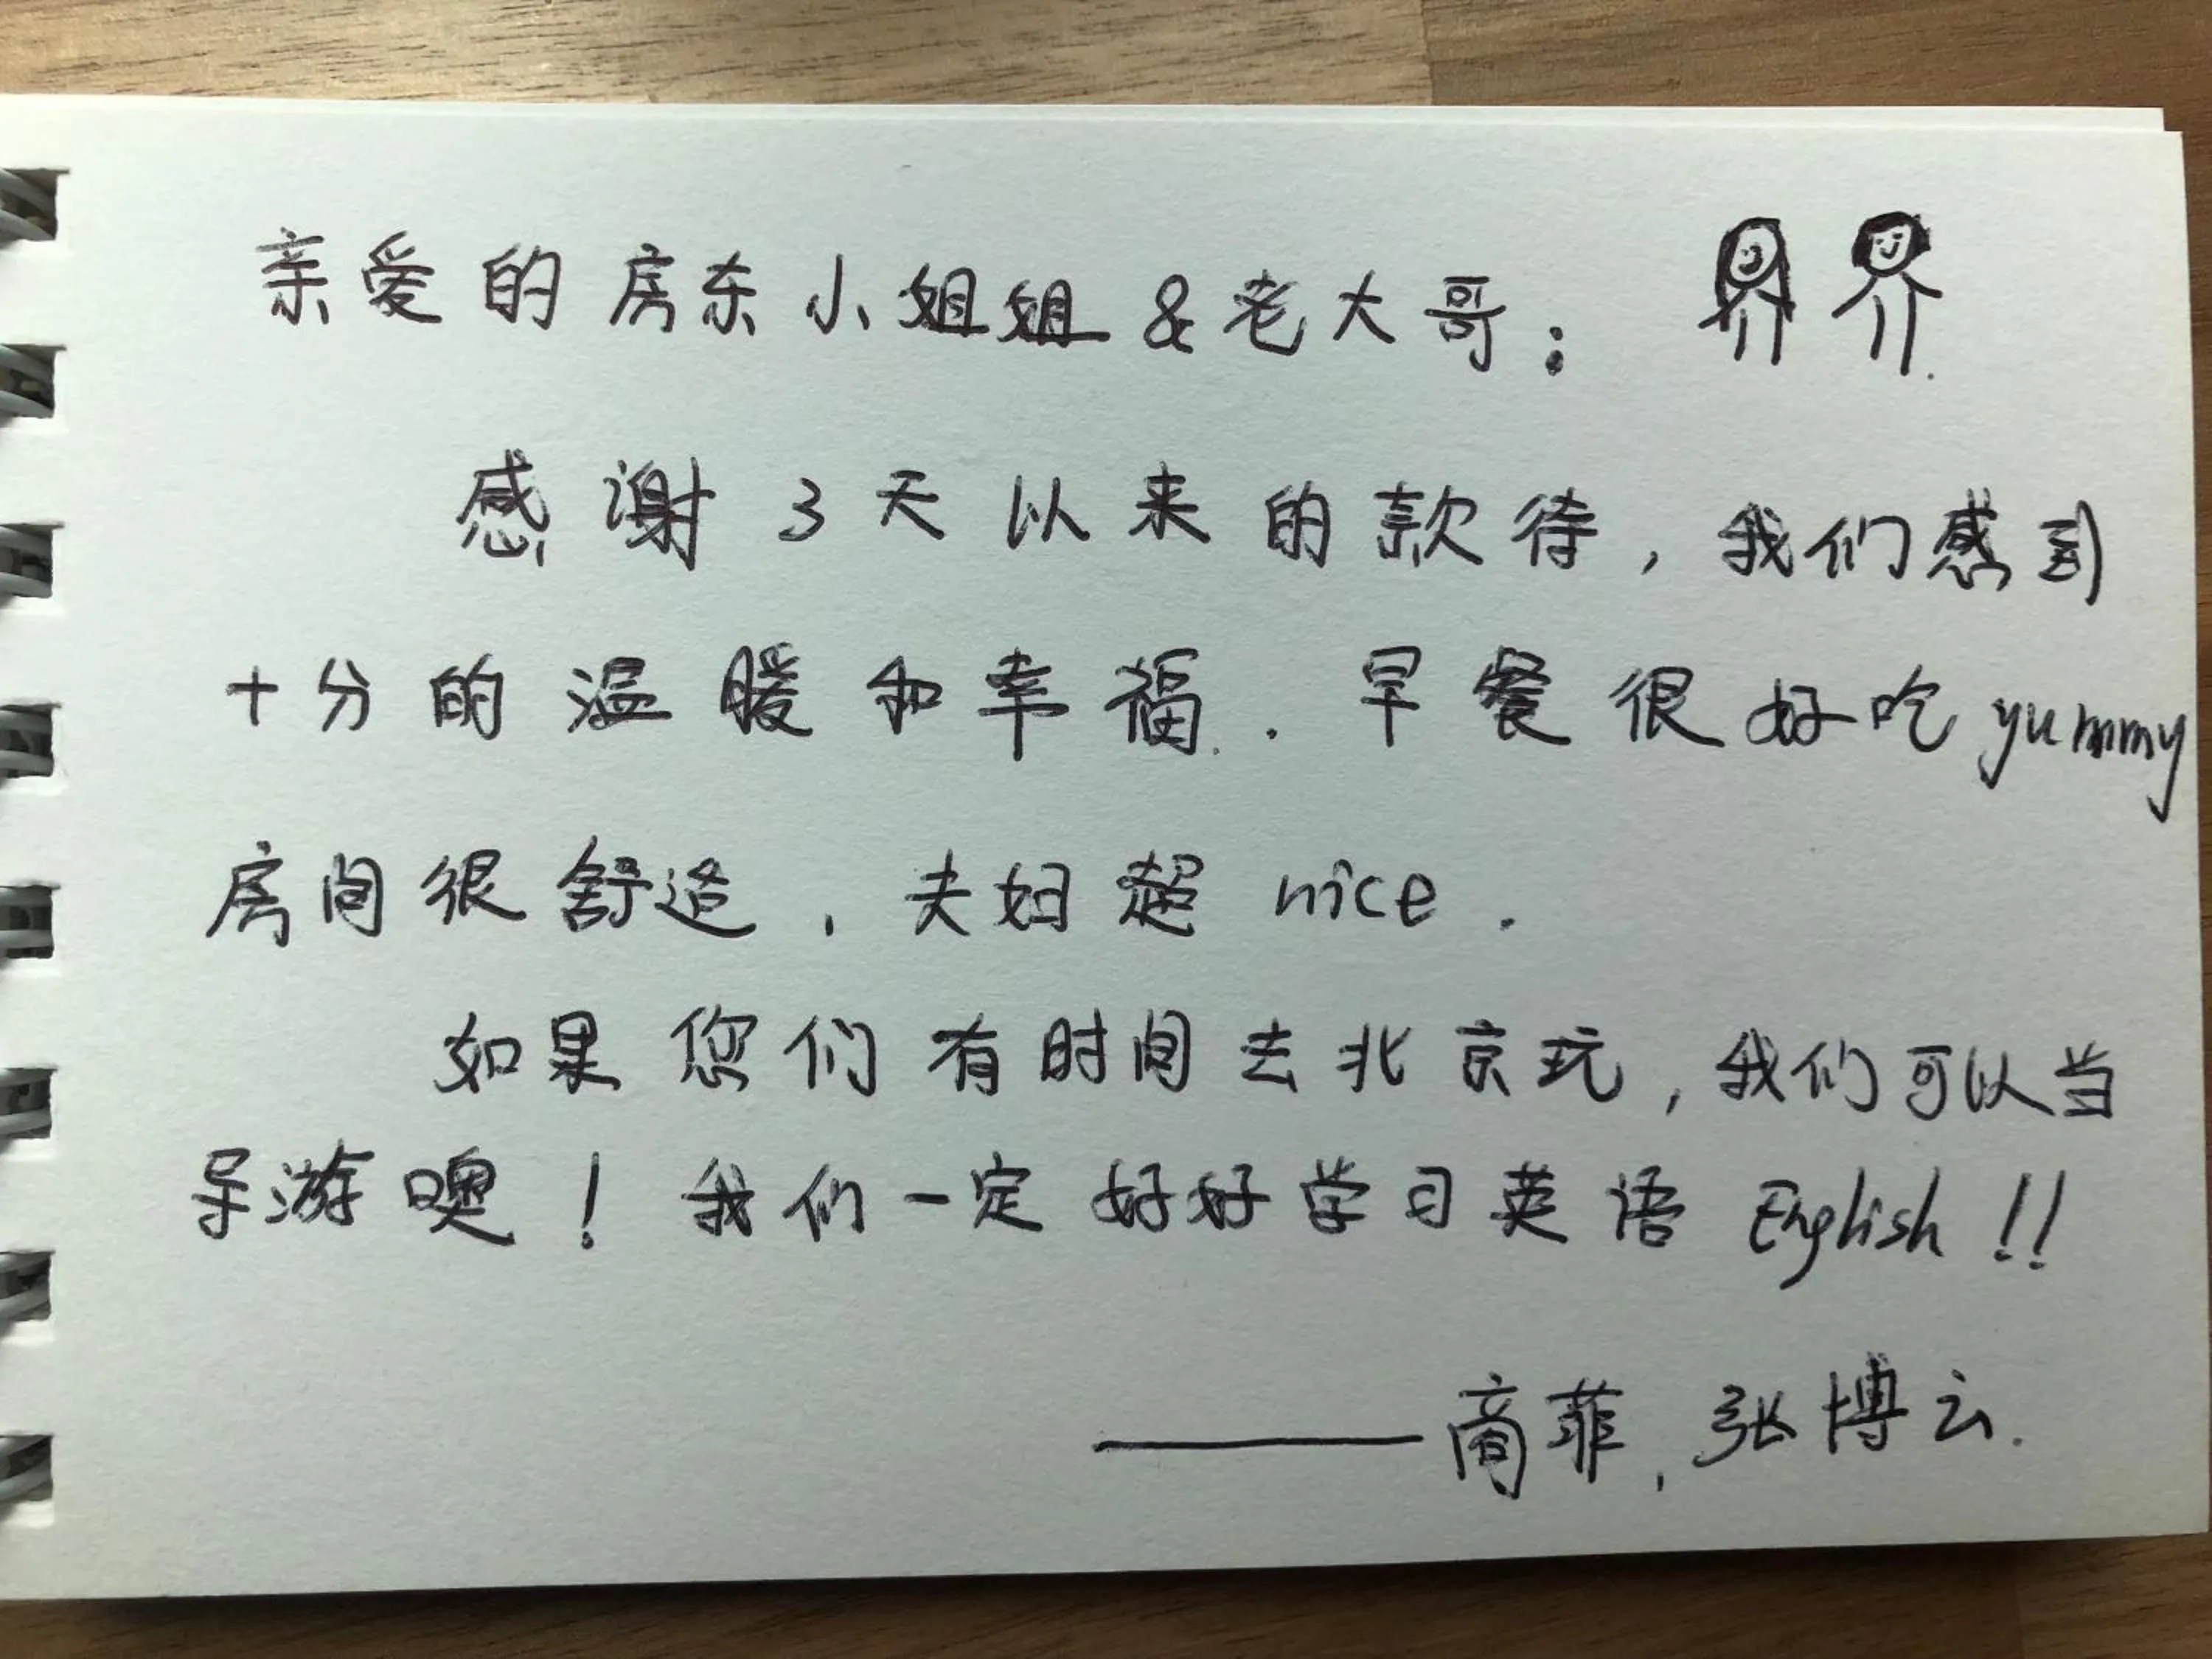 亲爱的房东小姐姐&老大哥:
感谢3天以来的款待,我们感到
十分的温暖和幸福.早餐很好吃yummy
房间很舒适,夫妇超nice.
如果您们有时间去北京玩,我们可以当
导游噢!我们一定好好学习英语English!!
——商菲,张博云.